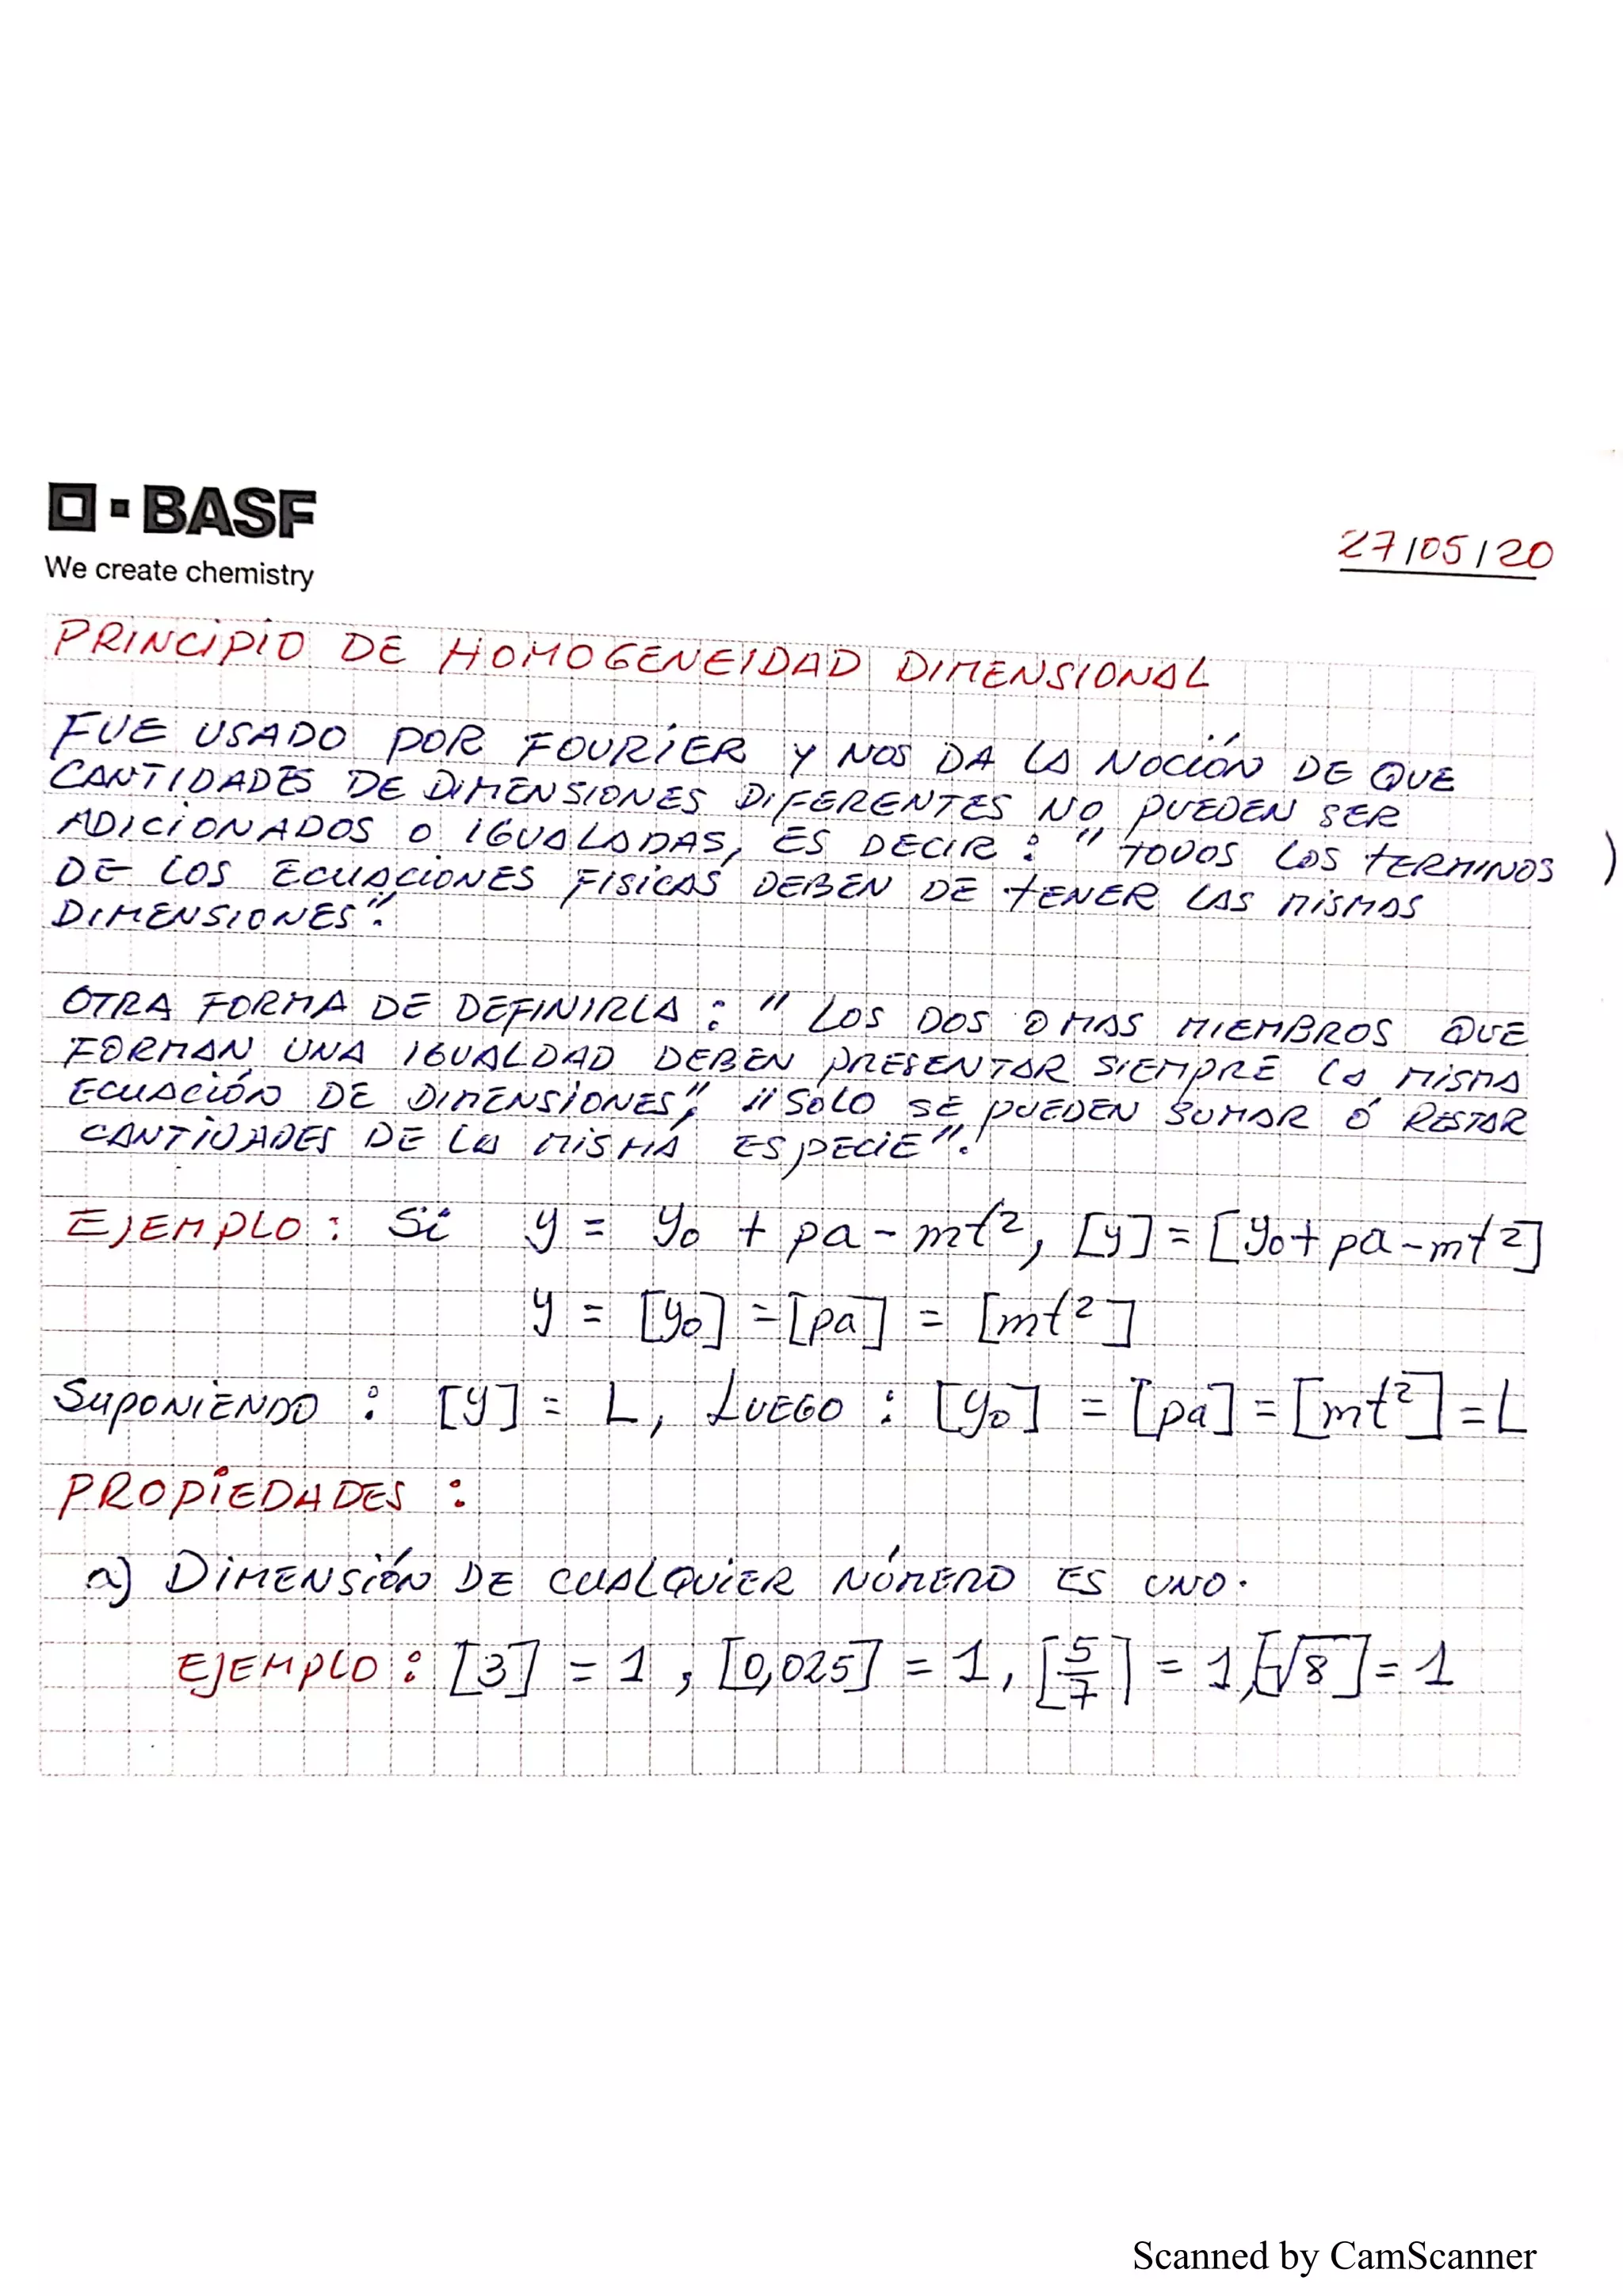 BASF
We create chemistry
27/05/20
PRINCIPIO DE HOMOGENEIDAD DIMENSIONAL
FUE USADO POR FOURIER Y NOS DA LA NOCIÓN DE QUE
CANTIDADES DE DIMENSIONES DIFERENTES NO PUEDEN SER
ADICIONADOS O IGUALADAS, ES DECIR : " TODOS LOS TERMINOS )
DE LOS ECUACIONES FISICAS DEBEN DE TENER LAS MISMAS
DIMENSIONES".
OTRA FORMA DE DEFINIRLA : " LOS DOS O MAS MIEMBROS QUE
FORMAN UNA IGUALDAD DEBEN PRESENTAR SIEMPRE LA MISMA
ECUACIÓN DE DIMENSIONES", "SOLO SE PUEDEN SUMAR Ó RESTAR
CANTIDADES DE LA MISMA ESPECIE".
EJEMPLO : Si y = y₀ + pa - mt², [y] = [y₀ + pa - mt²]
y = [y₀] = [pa] = [mt²]
SUPONIENDO : [y] = L, LUEGO : [y₀] = [pa] = [mt²] = L
PROPIEDADES :
a) DIMENSIÓN DE CUALQUIER NÚMERO ES UNO.
EJEMPLO : [3] = 1 , [0,025] = 1, [5/7] = 1, [-√8] = 1
Scanned by CamScanner